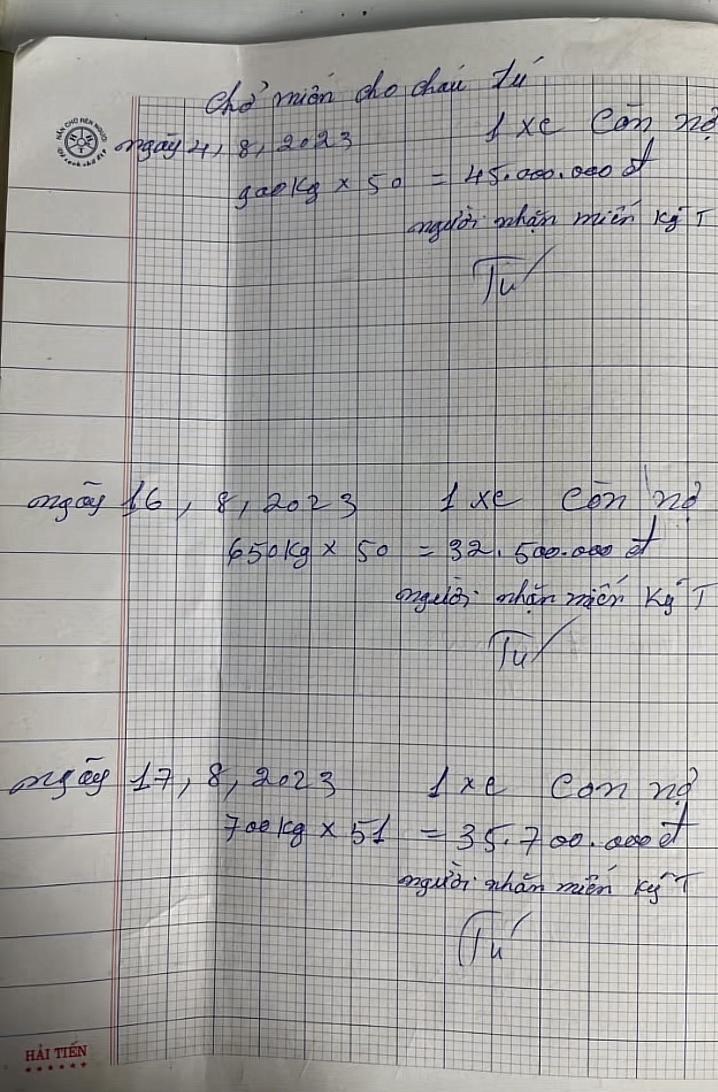 Chở miến cho cháu Tú
ngày 4, 8, 2023 1 xe Còn nợ
900kg x 50 = 45.000.000 đ
người nhận miến ký T
Tú
ngày 16, 8, 2023 1 xe Còn nợ
650kg x 50 = 32.500.000 đ
người nhận miến ký T
Tú
ngày 17, 8, 2023 1 xe Còn nợ
700kg x 51 = 35.700.000 đ
người nhận miến ký T
Tú
HẢI TIẾN